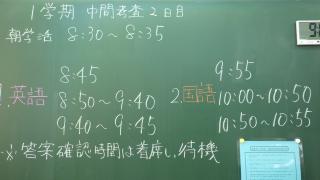 1学期 中間考査2日目
朝学活 8:30～8:35
8:45
1.英語 8:50～9:40
9:40～9:45
9:55
2.国語 10:00～10:50
10:50～10:55
※答案確認時間は着席し、待機